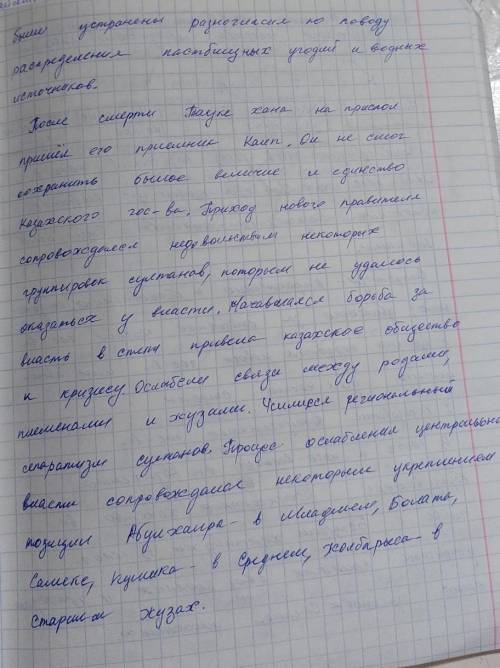 были устранены разногласия по поводу
распределения пастбищных угодий и водных
источников.
После смерти Тауке хана на престол
пришёл его приемник Каип. Он не смог
сохранить былое величие и единство
Казахского гос-ва. Приход нового правителя
сопровождался недовольством некоторых
группировек султанов, которым не удалось
оказаться у власти. Начавшаяся борьба за
власть в степи привела казахское общество
к кризису. Ослабели связи между родами,
племенами и жузами. Усилился региональный
сепаратизм султанов. Процес ослабления центральной
власти сопровождался некоторым укреплением
позиции Абулхаира - в Младшем, Болата,
Самеке, Кушика - в Среднем, Жолбарыса - в
Старшем жузах.